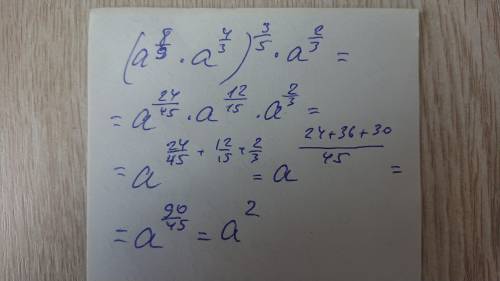 (a^{8/9} · a^{4/3})^{3/5} · a^{2/3} =
= a^{24/45} · a^{12/15} · a^{2/3} =
= a^{24/45 + 12/15 + 2/3} = a^{(24+36+30)/45} =
= a^{90/45} = a^2